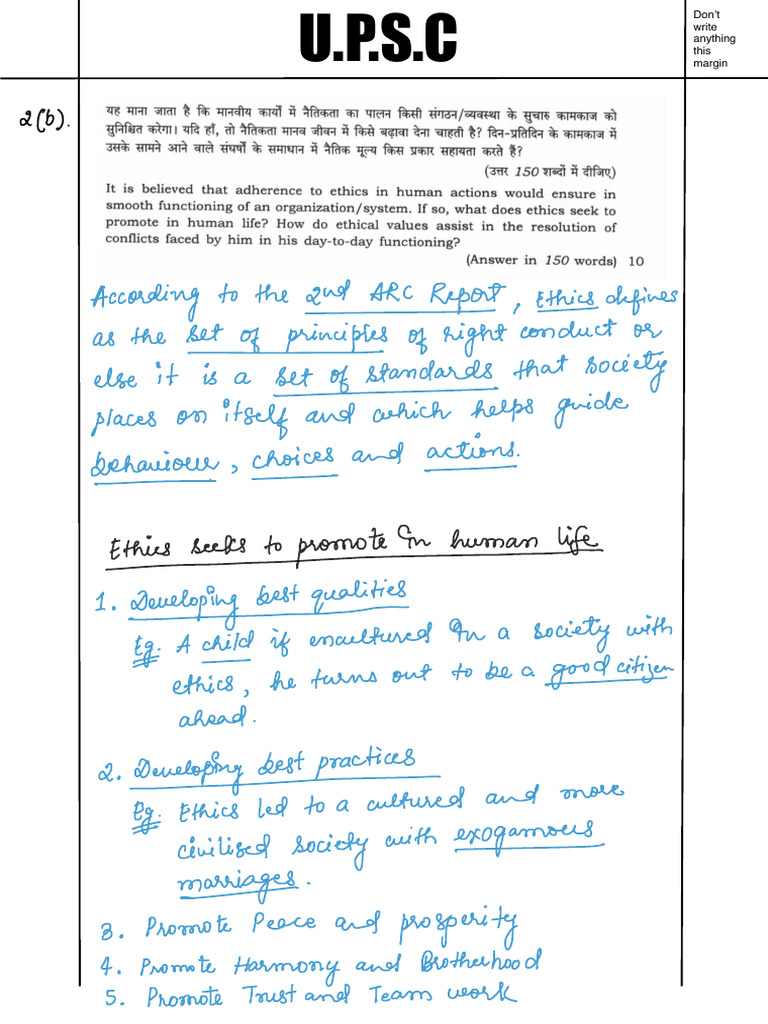 U.P.S.C
Don't
write
anything
this
margin
2(b).
यह माना जाता है कि मानवीय कार्यों में नैतिकता का पालन किसी संगठन/व्यवस्था के सुचारु कामकाज को
सुनिश्चित करेगा। यदि हाँ, तो नैतिकता मानव जीवन में किसे बढ़ावा देना चाहती है? दिन-प्रतिदिन के कामकाज में
उसके सामने आने वाले संघर्षों के समाधान में नैतिक मूल्य किस प्रकार सहायता करते हैं?
(उत्तर 150 शब्दों में दीजिए)
It is believed that adherence to ethics in human actions would ensure in
smooth functioning of an organization/system. If so, what does ethics seek to
promote in human life? How do ethical values assist in the resolution of
conflicts faced by him in his day-to-day functioning?
(Answer in 150 words) 10
According to the 2nd ARC Report, Ethics defines
as the set of principles of right conduct or
else it is a set of standards that society
places on itself and which helps guide
behaviour, choices and actions.
Ethics seeks to promote in human life
1. Developing best qualities
Eg. A child if encultured in a society with
ethics, he turns out to be a good citizen
ahead.
2. Developing best practices
Eg. Ethics led to a cultured and more
civilised society with exogamous
marriages.
3. Promote Peace and prosperity
4. Promote Harmony and Brotherhood
5. Promote Trust and Team work